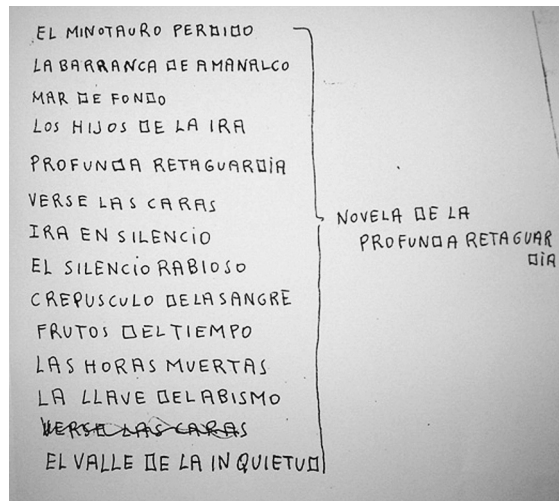 EL MINOTAURO PERDIDO
LA BARRANCA DE AMANALCO
MAR DE FONDO
LOS HIJOS DE LA IRA
PROFUNDA RETAGUARDIA
VERSE LAS CARAS
IRA EN SILENCIO
EL SILENCIO RABIOSO
CREPUSCULO DE LA SANGRE
FRUTOS DEL TIEMPO
LAS HORAS MUERTAS
LA LLAVE DEL ABISMO
VERSE LAS CARAS
EL VALLE DE LA INQUIETUD
NOVELA DE LA
PROFUNDA RETAGUAR
DIA